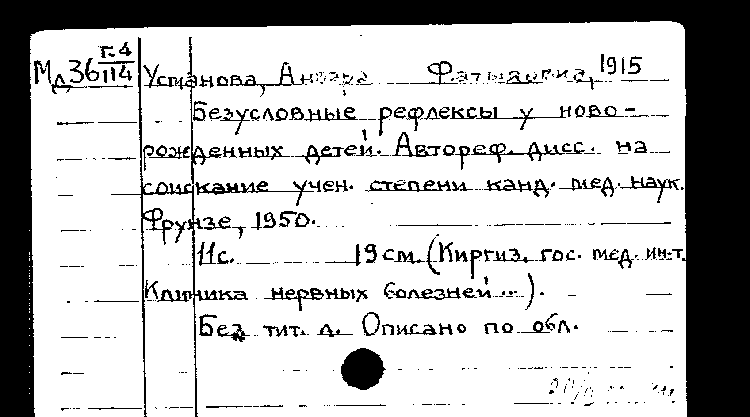 г.4
Мд36 114 Усманова, 1915
Безусловные рефлексы у ново-
рожденных детей. Автореф. дисс. на
соискание учен. степени канд. мед. наук.
Фрунзе, 1950.
11с. 19см. (Киргиз. гос. мед. ин-т.
Клиника нервных болезней...).
Без тит. л. Описано по обл.